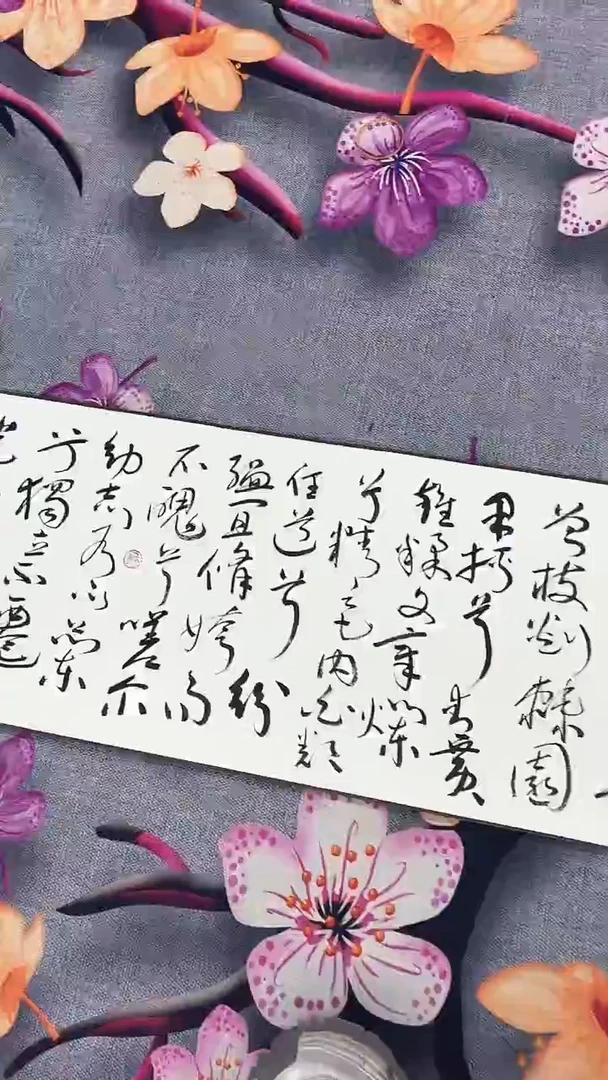 曾枝剡棘圓
果摶兮青黃
雜糅文章爛
兮精色内白類
任道兮紛
緼宜脩姱而
不醜兮嗟尔
幼志有以異
兮獨立不遷